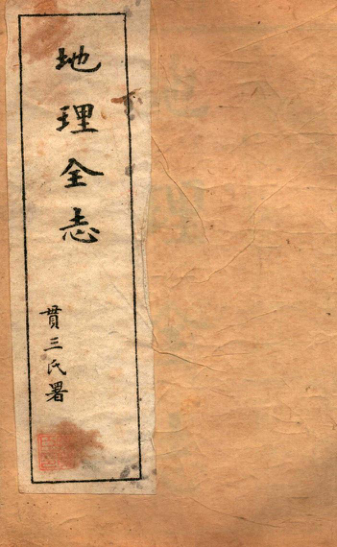 地理全志
贯三氏署